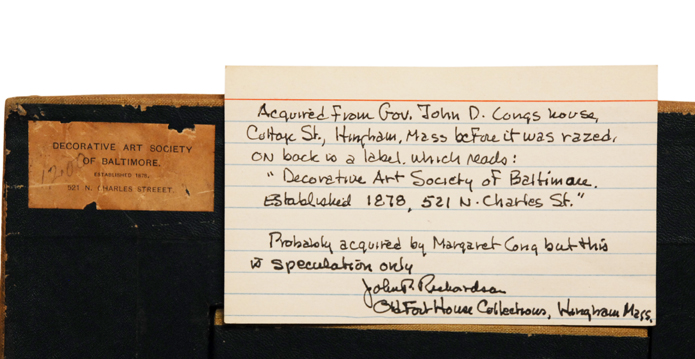 DECORATIVE ART SOCIETY
OF BALTIMORE.
ESTABLISHED 1878,
521 N. CHARLES STREEET.
12.00
Acquired from Gov. John D. Longs house,
Cottage St., Hingham, Mass before it was razed.
ON back is a label which reads:
"Decorative Art Society of Baltimore.
Established 1878, 521 N. Charles St."
Probably acquired by Margaret Long but this
is speculation only
John P. Richardson
Old Fort House Collections, Hingham Mass.